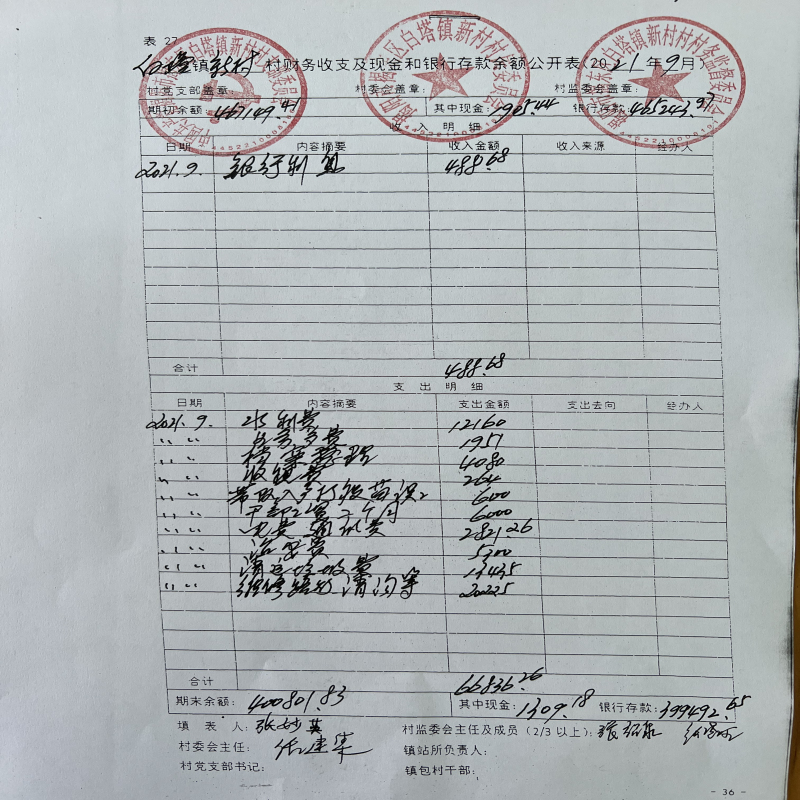 表 27
白塔镇新村 村财务收支及现金和银行存款余额公开表(2021年9月)
村党支部盖章: 村委会盖章: 村监委会盖章:
期初余额: 467149.41 其中现金: 1905.44 银行存款: 465243.97
收 入 明 细
日期 内容摘要 收入金额 收入来源 经办人
2021.9. 银行利息 488.68
合计 488.68
支 出 明 细
日期 内容摘要 支出金额 支出去向 经办人
2021.9. 水利费 12160
〃 〃 1957
〃 〃 档案整理 4080
〃 〃 264
〃 〃 600
〃 〃 干部工资 个月 6000
〃 〃 电费 通讯费 2821.26
〃 〃 治安费 5300
〃 〃 清运垃圾费 13435
〃 〃 维修 清沟等 20225
合计 66836.26
期末余额: 400801.83 其中现金: 1309.18 银行存款: 399492.65
填 表 人: 张妙英 村监委会主任及成员(2/3以上):
村委会主任: 镇站所负责人:
村党支部书记: 镇包村干部:
- 36 -